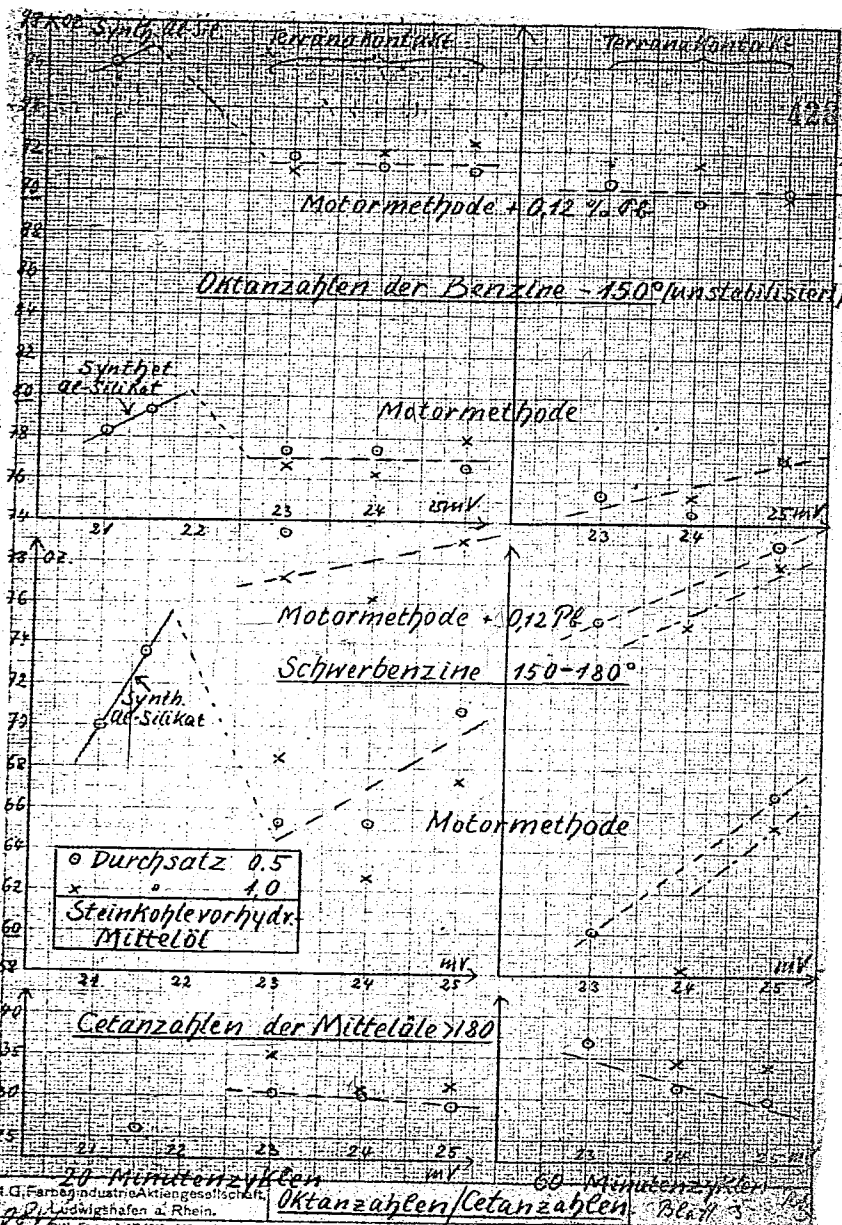 OZ.
Synth al-sil
Terrana Kontakt
Terrana Kontakt
428
72
70
Motormethode + 0,12 % Pb
88
86
Oktanzahlen der Benzine -150° (unstabilisiert)
84
82
80
Synthet
al-Silikat
Motormethode
78
76
74
21 22 23 24 25mV
23 24 25mV
78 OZ.
76
Motormethode + 0,12 Pb
74
Schwerbenzine 150-180°
72
Synth.
al-Silikat
70
68
66
Motormethode
64
⊙ Durchsatz 0.5
x " 1,0
62
Steinkohlevorhydr.-
Mittelöl
60
58
21 22 23 24 25 mV
23 24 25 mV
40
Cetanzahlen der Mittelöle >180
35
30
25
21 22 23 24 25 mV
23 24 25 mV
20 Minutenzyklen
60 Minutenzyklen
I.G. Farbenindustrie Aktiengesellschaft.
Ludwigshafen a. Rhein.
Oktanzahlen/Cetanzahlen
Blatt 3